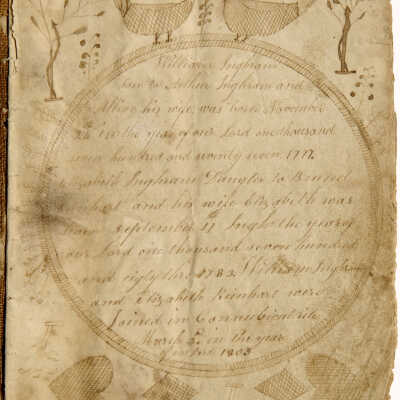 William Inghram
son to Arthur Inghram and
his wife was born November
in the year of our Lord one thousand
seven hundred and seventy seven 1777
Elizabeth Inghram Daugter to
and his wife Elizabeth was
born September 11 the year of
our Lord one thousand seven hundred
and eighty three 1783 William Inghram
and Elizabeth Reinhart were
Joined in Connubical rite
March in the year
of our Lord 1803